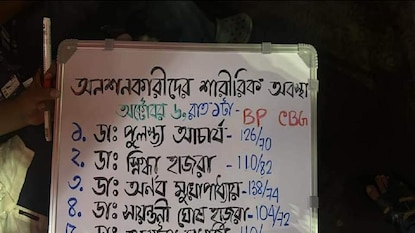 অনশনকারীদের শারীরিক অবস্থা
অক্টোবর ৬, রাত ৯টা BP CBG
১. ডাঃ পুলস্ত্য আচার্য - 126/70
২. ডাঃ স্নিগ্ধা হাজরা - 110/82
৩. ডাঃ অর্নব মুখোপাধ্যায় - 138/74
৪. ডাঃ সায়ন্তনী ঘোষ হাজরা - 104/72